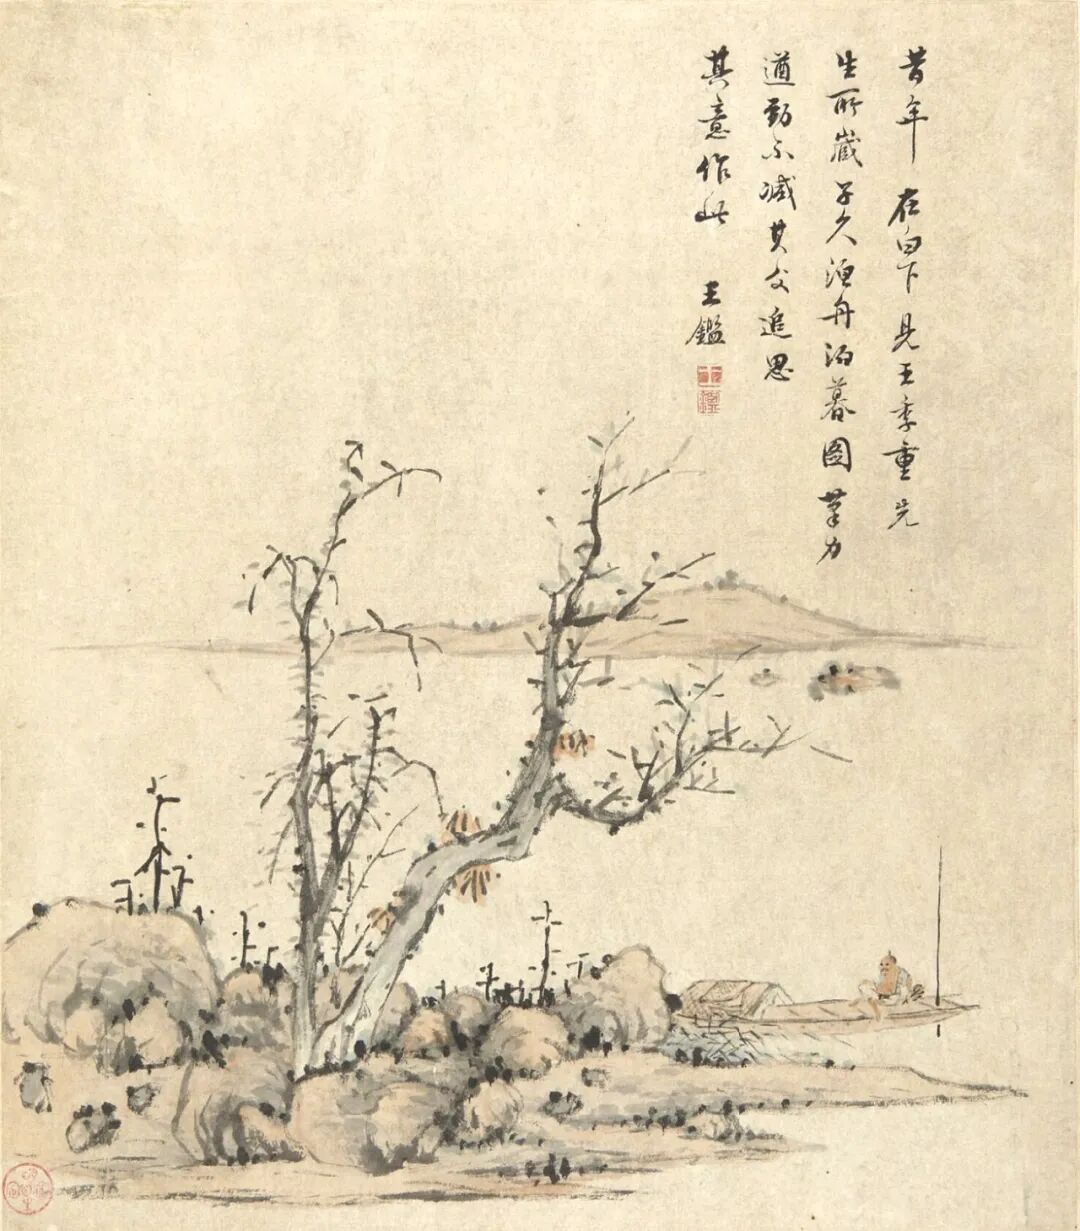 昔年在白下見王季重先
生所藏子久漁舟泊暮圖筆力
遒勁不減其父追思
其意作此 王鑑